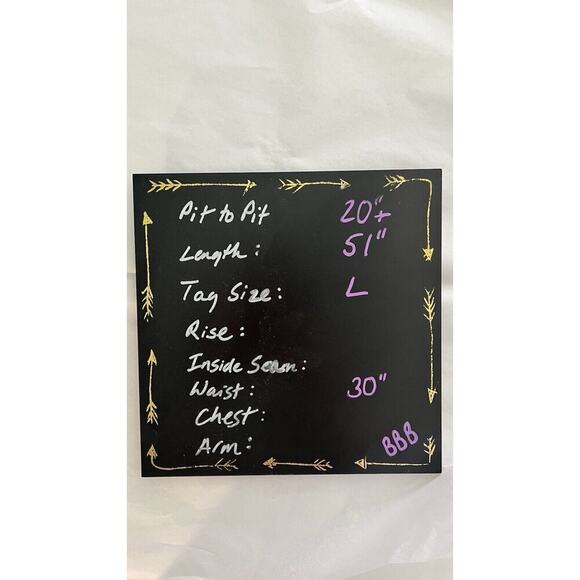 Pit to Pit 20"+
Length: 51"
Tag Size: L
Rise:
Inside Seam:
Waist: 30"
Chest:
Arm:
BBB